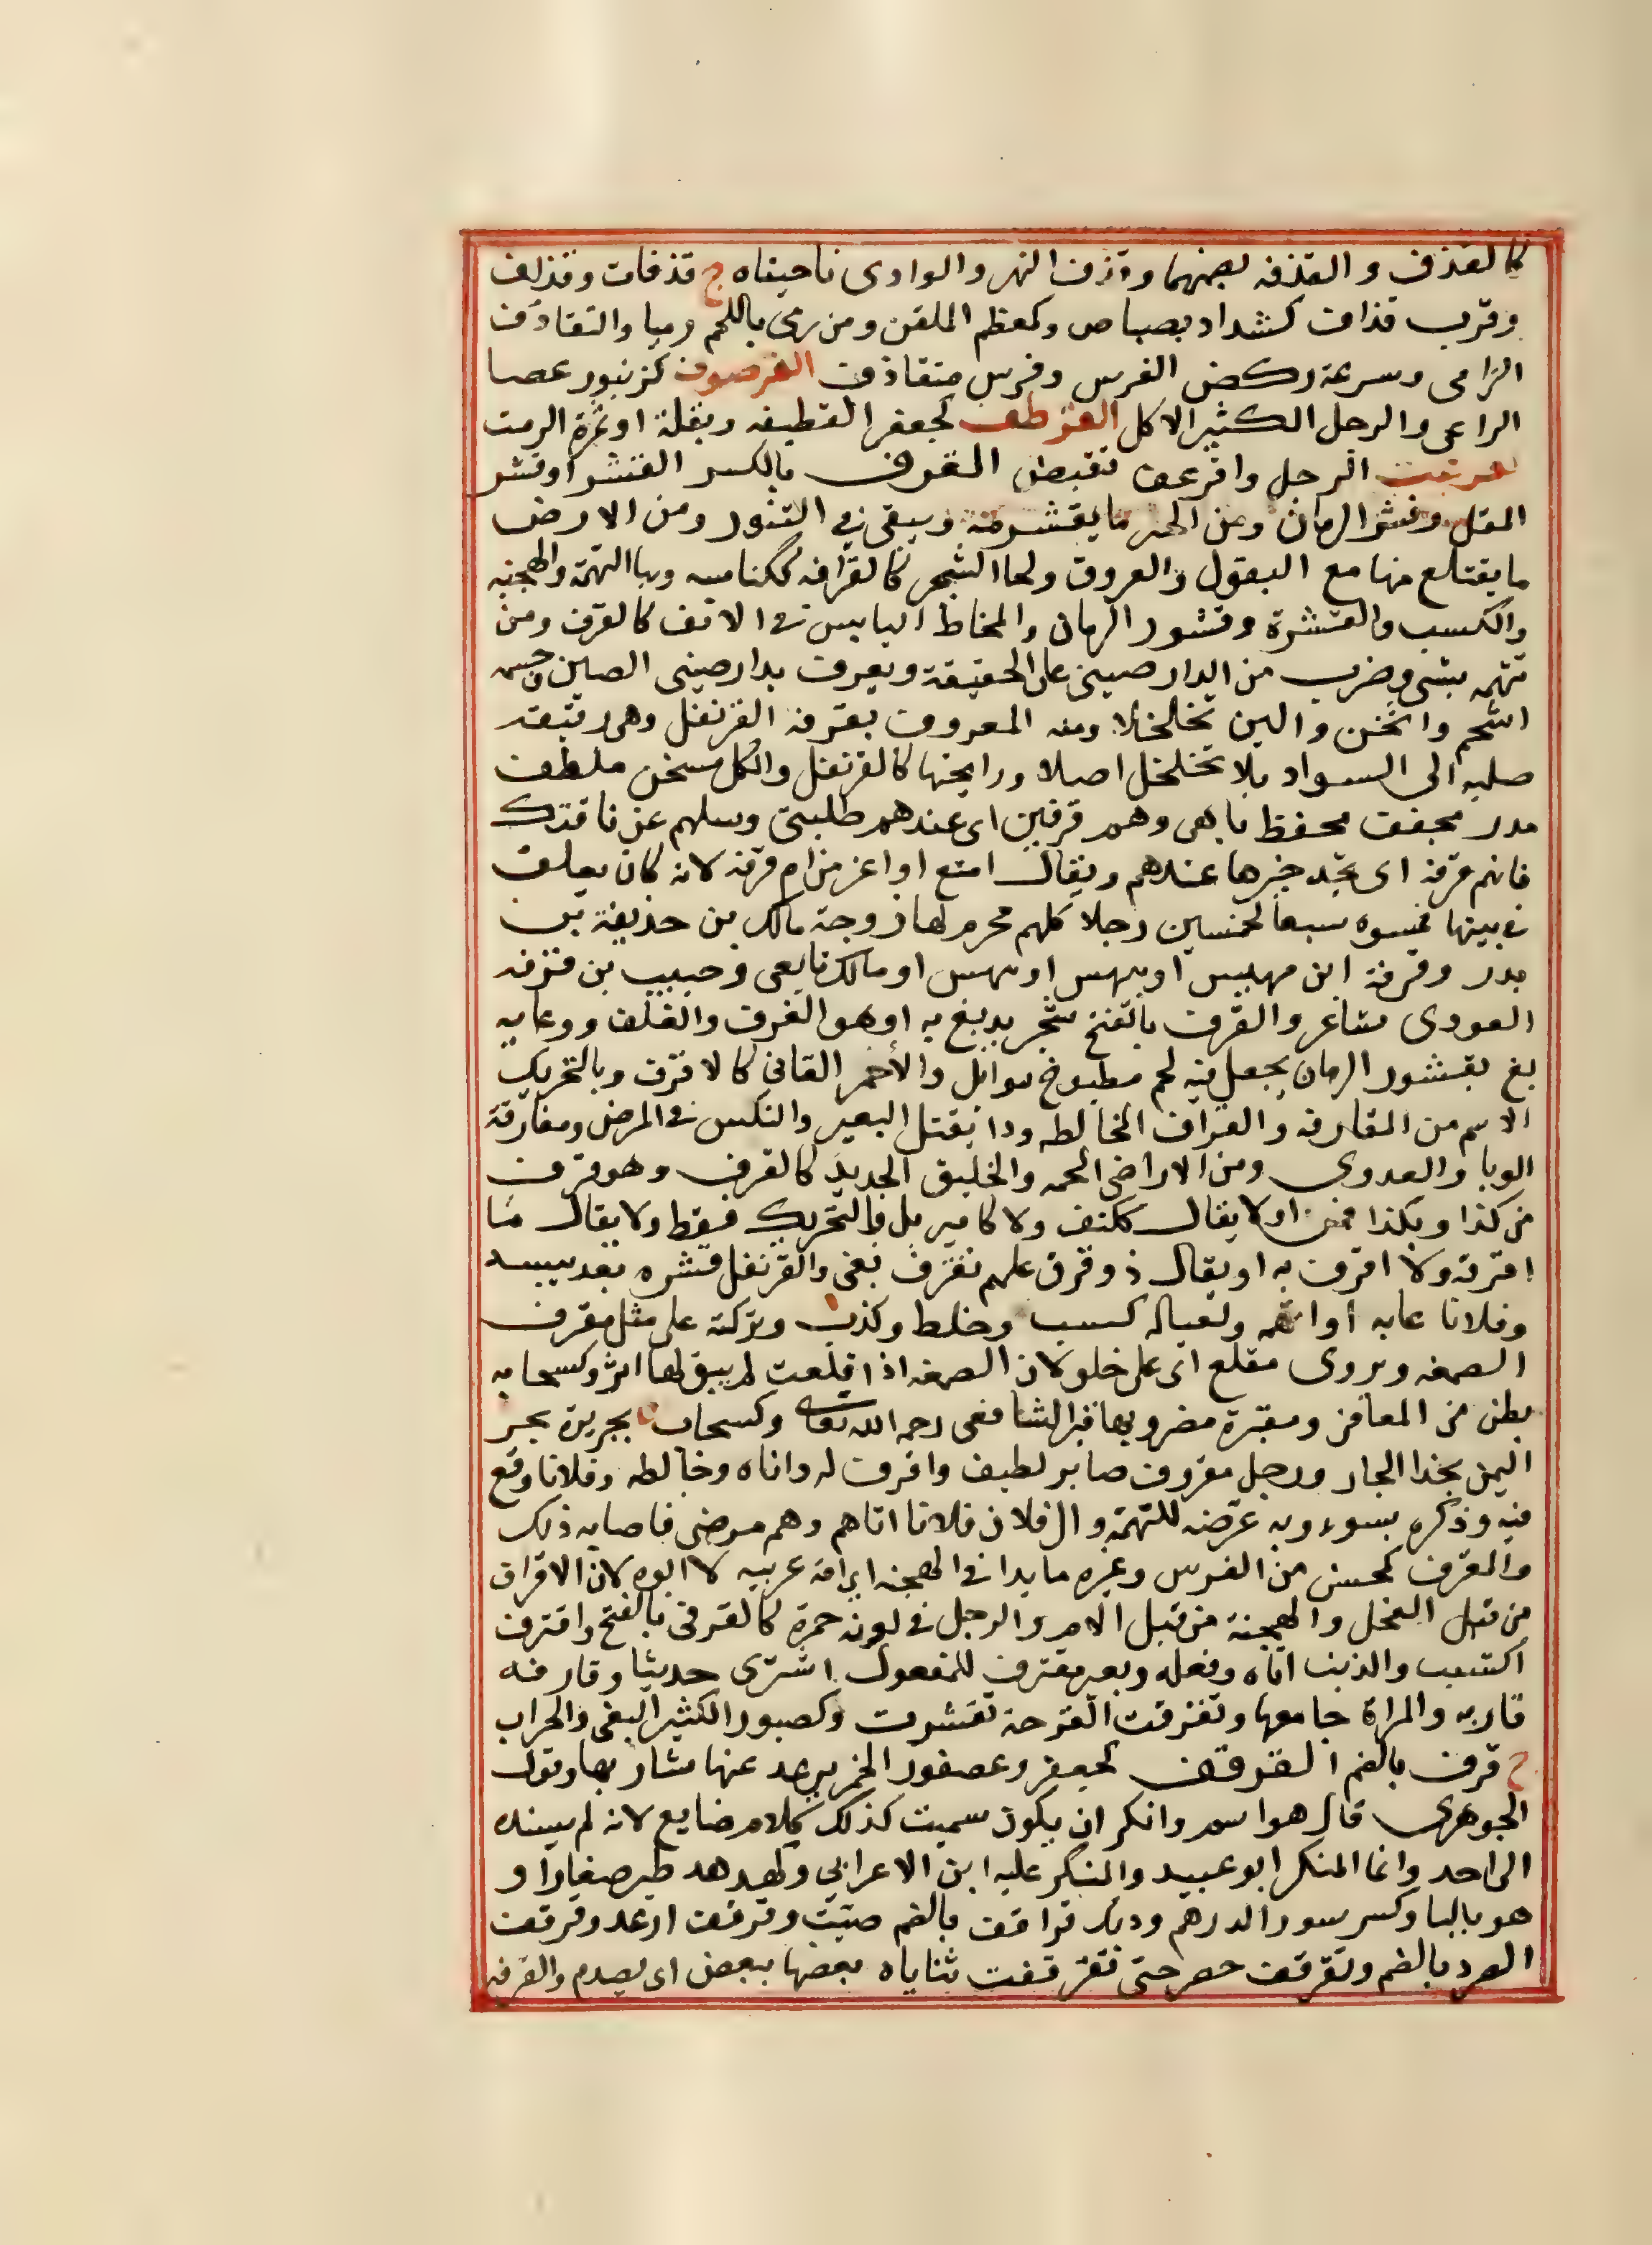 كالقذف والقذفه بضمهما وقذف النهر والوادى ناحيتاه ج قذفات وقذف
وقرب قذاف كشداد بصباص وكمعظم الملعن ومن رمى باللحم رميا والتقاذف
الترامى وسرعة ركض الفرس وفرس متقاذف القرصوف كزنبور عصا
الراعى والرجل الكثير الاكل القرطف كجعفر القطيفه وبقلة او ثمرة الرمث
الرجل واقرعف تقبض القرف بالكسر القشر او قشر
المقل وقشر الرمان ومن الخبز ما يقشر منه ويبقى فى التنور ومن الارض
ما يقتلع منها مع البقول والعروق ولحا الشجر كالقرافه ككناسه وبها التهمة والهجنه
والكسب والقشرة وقشور الرمان والمخاط اليابس فى الانف كالقرف ومن
تتهمه بشى وضرب من الدارصينى على الحقيقة ويعرف بدارصينى الصين جسمه
اشحم واثخن والين تخلخلا ومنه المعروف بقرفه القرنفل وهى رقيقه
صلبه الى السواد بلا تخلخل اصلا ورايحتها كالقرنفل والكل مسخن ملطف
مدر مجفف محفظ باهى وهم قرفتى اى عندهم طلبتى وسلهم عن ناقتك
فانهم قرفه اى تجد خبرها عندهم ويقال امنع او اعز من ام قرفه لانه كان يعلق
فى بيتها خمسون سيفا لخمسين رجلا كلهم محرم لها زوجة مالك بن حذيفة بن
بدر وقرفة ابن بهيس او بيهس او مالك تابعى وحبيب بن قرفه
العودى شاعر والقرف بالفتح شجر يدبغ به او هو الغرف والغلف ووعا يد
بغ بقشور الرمان يجعل فيه لحم مطبوخ بتوابل والاحمر القانى كالاقرف وبالتحريك
الاسم من المقارفه والقراف المخالطه ودا يقتل البعير والنكس فى المرض ومقارفة
الوبا والعدوى ومن الاراضى المحمه والخليق الجدير كالقرف وهو قرف
من كذا وبكذا قمن او لا يقال ككتف ولا كامير بل بالتحريك فقط ولا يقال ما
اقرفه ولا اقرف به او يقال ذ وقرف عليهم يقرف بغى والقرنفل قشره بعد يبسه
وفلانا عابه او اتهمه ولعياله كسب وخلط وكذب وتركته على مثل مقرف
الصمغه ويروى مقلع اى على خلو لان الصمغه اذا اقلعت لم يبق لها اثر وكسحابه
بطن من المعافر ومقبرة مصر وبها قبر الشافعى رحمه الله تعالى وكسحاب بجزيرة بحر
اليمن بحذا الجار ورجل مقروف ضابر لطيف واقرف له داناه وخالطه وفلانا وقع
فيه وذكره بسوء وبه عرضه للتهمة وال فلان فلانا اتاهم وهم مرضى فاصابه ذلك
والمقرف كمحسن من الفرس وغيره ما يدانى الهجنه اى امه عربيه لا ابوه لان الاقراف
من قبل الفحل والهجنة من قبل الام والرجل فى لونه حمرة كالقرفى بالفتح واقترف
اكتسب والذنب اتاه وفعله وبعير مقترف للمفعول اشترى حديثا وقارفه
قاربه والمراة جامعها وتقرفت القرحة تقشرت وكصبور الكثير البغى والجراب
ج قرف بالضم القرقف كجعفر وعصفور الخمر يرعد عنها شاربها وقول
الجوهرى قال هو اسم وانكر ان يكون سميت كذلك كلام ضايع لانه لم يسنده
الى احد وانما المنكر ابو عبيد والمنكر عليه ابن الاعرابى وكهدهد طير صغار او
هو بالبا وكسرسور الدرهم وديك قراقف بالضم صيت وقرقف ارعد وقرقف
الصرد بالضم وتقرقف خصر حتى تقرقفت ثناياه بعضها ببعض اى يصدم والقرقفه